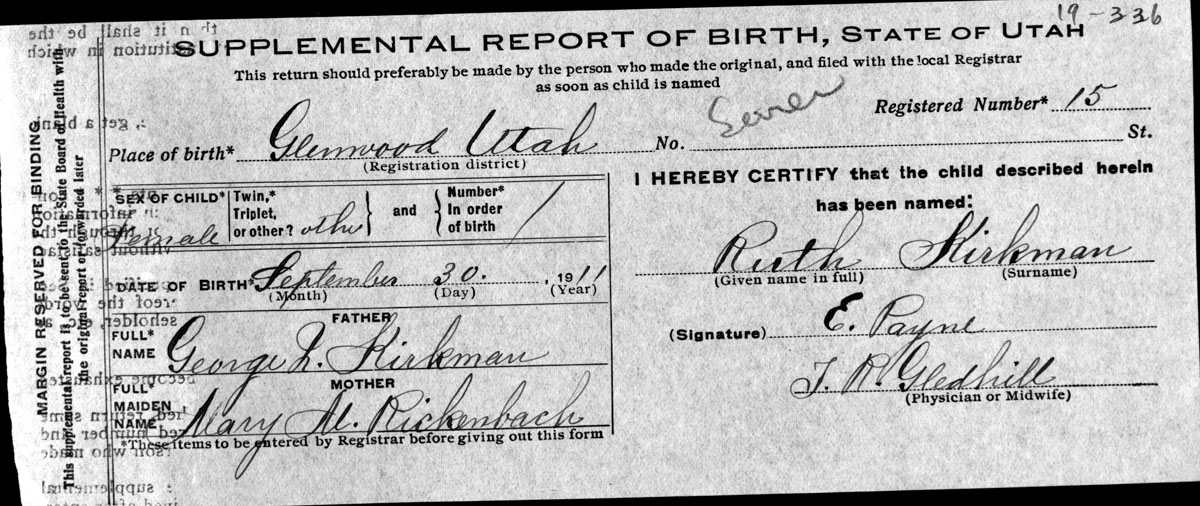 19-336
SUPPLEMENTAL REPORT OF BIRTH, STATE OF UTAH
This return should preferably be made by the person who made the original, and filed with the local Registrar
as soon as child is named
Sevier
Registered Number* 15
Place of birth* Glenwood Utah No. St.
(Registration district)
SEX OF CHILD* Female
Twin,* Triplet, or other? other
and
Number* In order of birth 1
DATE OF BIRTH* September 30. , 1911
(Month) (Day) (Year)
FATHER
FULL* NAME George L. Kirkman
MOTHER
FULL* MAIDEN NAME Mary M. Rickenbach
*These items to be entered by Registrar before giving out this form
I HEREBY CERTIFY that the child described herein
has been named:
Ruth Kirkman
(Given name in full) (Surname)
(Signature) E. Payne
J. R. Gledhill
(Physician or Midwife)
MARGIN RESERVED FOR BINDING
This supplemental report is to be sent to the State Board of Health with
the original report or forwarded later